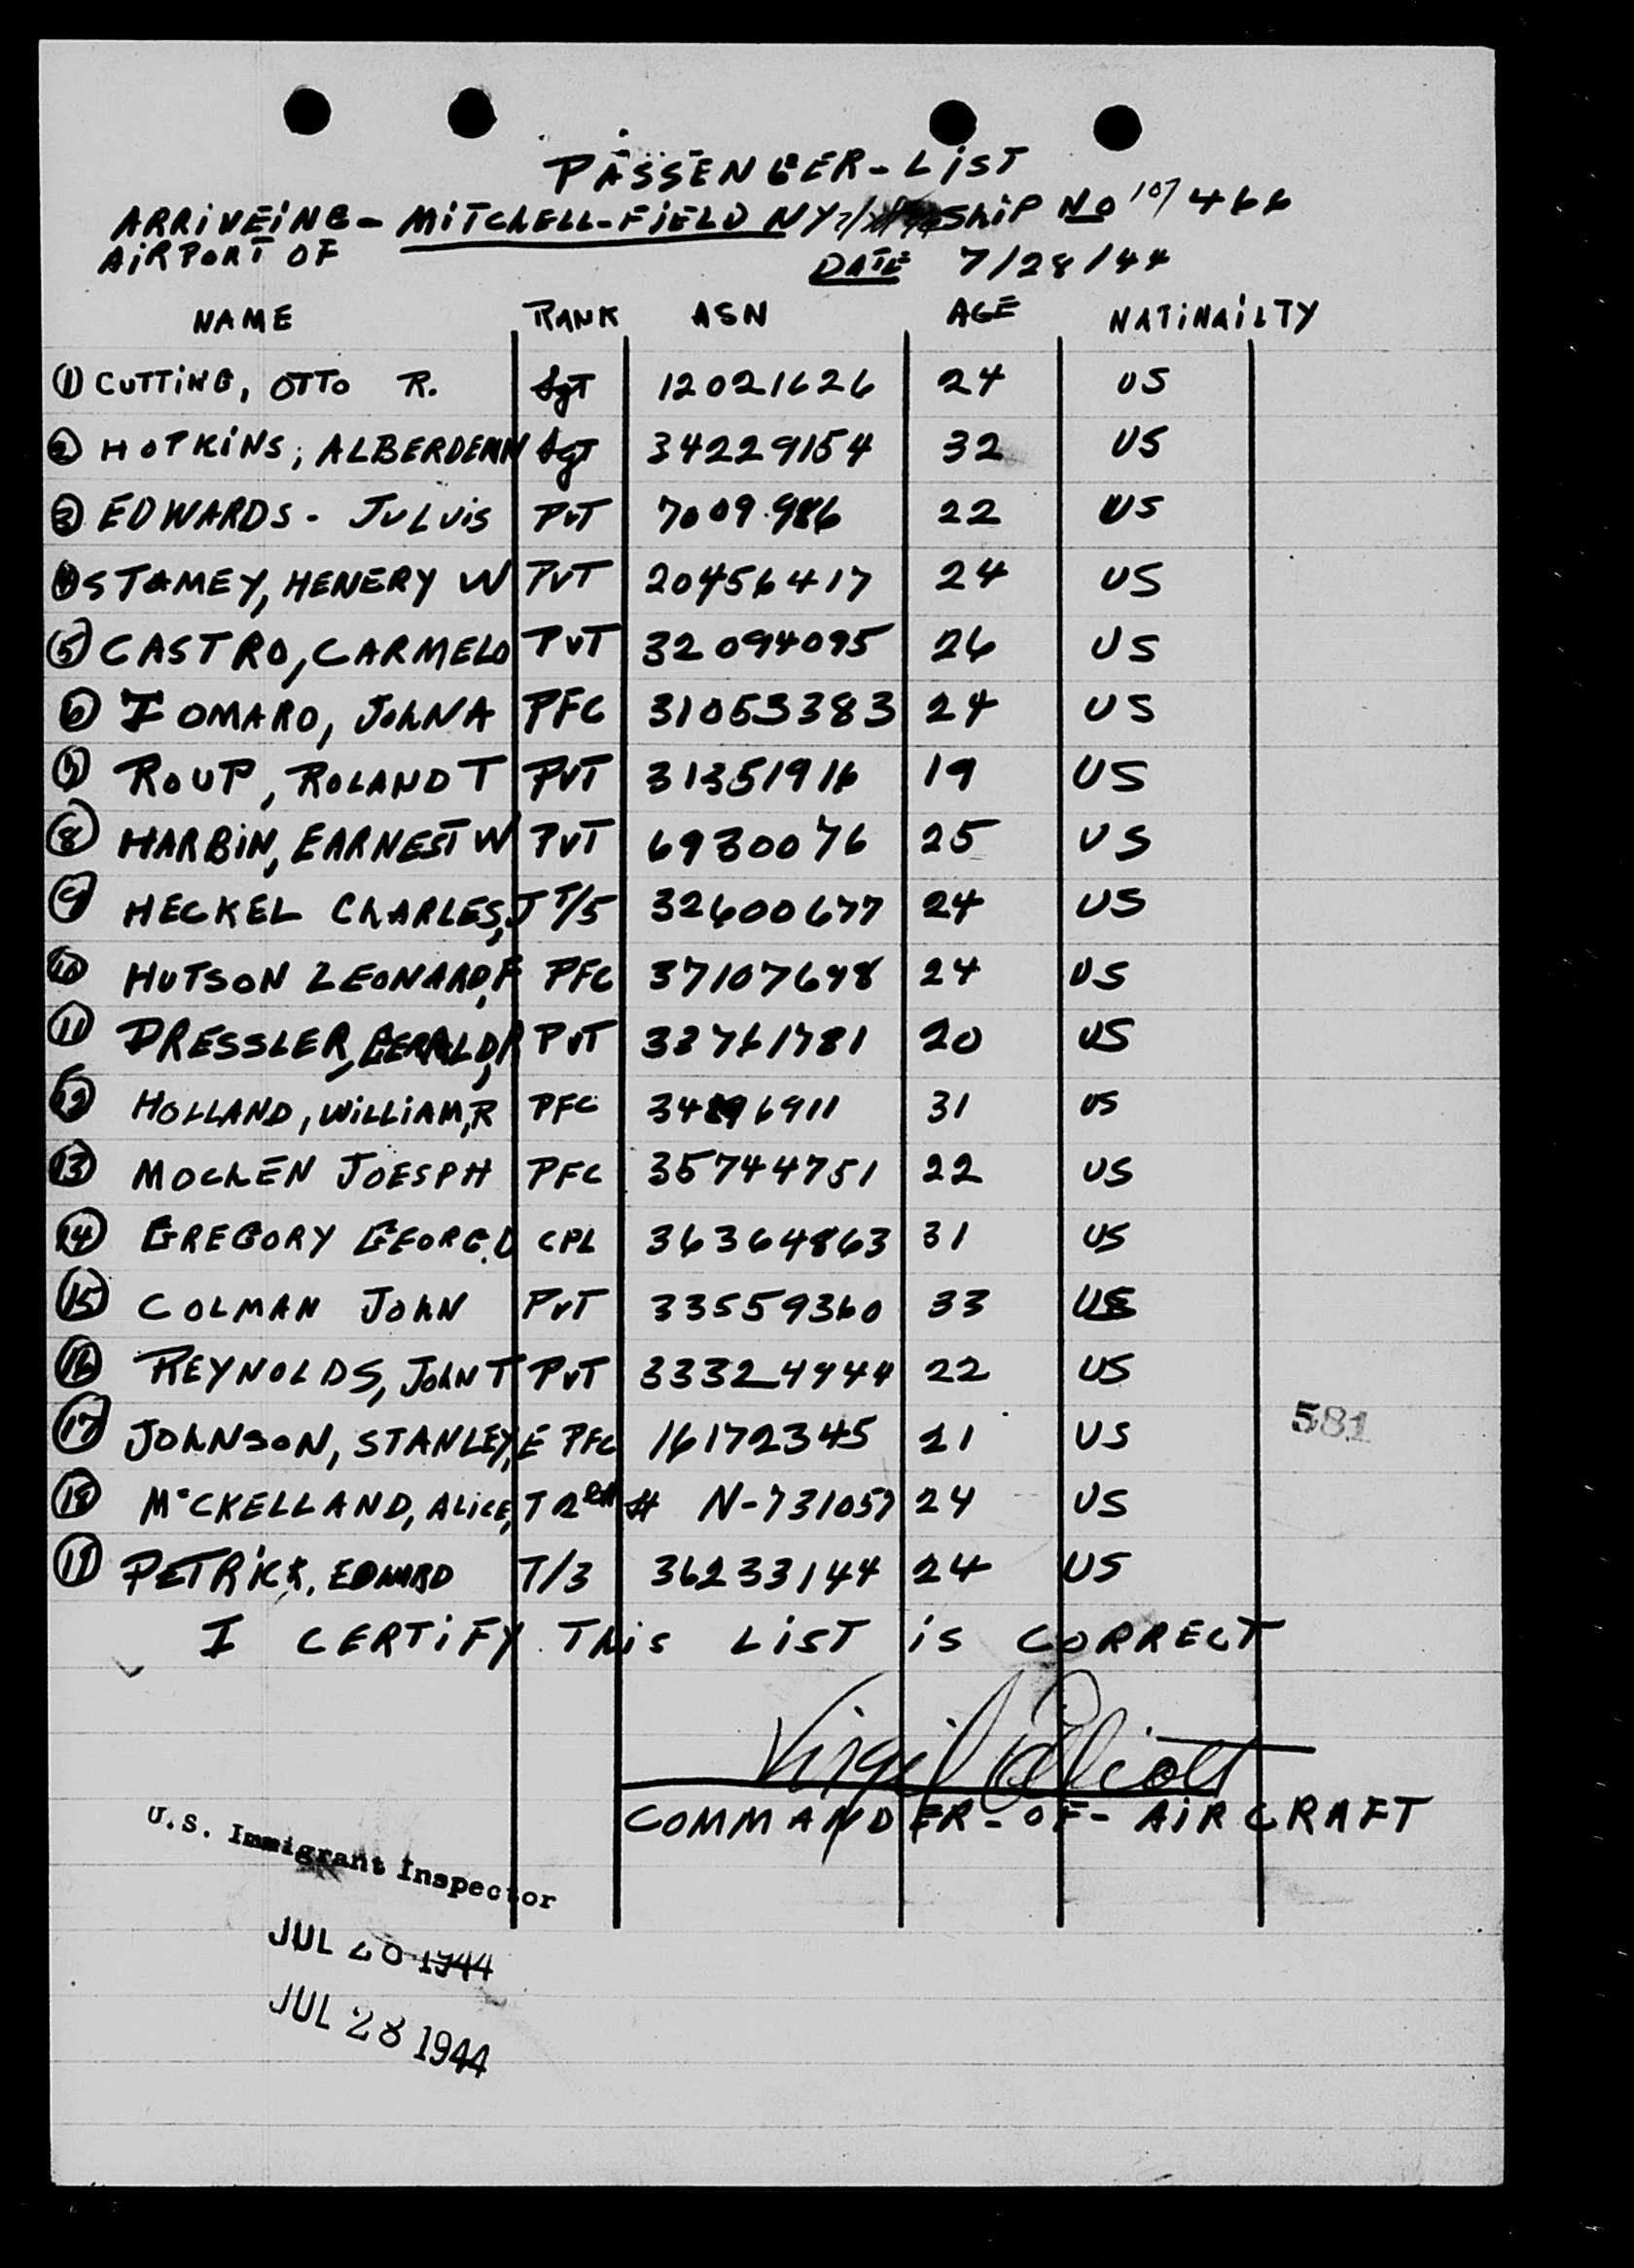 PASSENGER-LIST
ARRIVEING- MITCHELL-FIELD NY SHIP NO 107466
AIRPORT OF
DATE 7/28/44
NAME RANK ASN AGE NATINAILTY
(1) CUTTING, OTTO R. Sgt 12021626 24 US
(2) HOPKINS, ALBERDEAN Sgt 34229154 32 US
(3) EDWARDS- JULVIS PVT 7009986 22 US
(4) STAMEY, HENERY W PVT 20456417 24 US
(5) CASTRO, CARMELO PVT 32094095 26 US
(6) IOMARO, JOHN A PFC 31053383 24 US
(7) ROUP, ROLAND T PVT 31351916 19 US
(8) HARBIN, EARNEST W PVT 6930076 25 US
(9) HECKEL CHARLES, J T/5 32600677 24 US
(10) HUTSON LEONARD, F PFC 37107698 24 US
(11) DRESSLER, GERALD, R PVT 33761781 20 US
(12) HOLLAND, WILLIAM, R PFC 6911 31 US
(13) MOCHEN JOESPH PFC 35744751 22 US
(14) GREGORY GEORG. D CPL 36364863 31 US
(15) COLMAN JOHN PVT 33559360 33 US
(16) REYNOLDS, JOHN T PVT 33324944 22 US
(17) JOHNSON, STANLEY, E PFC 16172345 21 US
581
(18) McCKELLAND, ALICE, T # N-731057 24 US
(19) PETRICK, EDWARD T/3 36233144 24 US
I CERTIFY THIS LIST IS CORRECT
Virgil Elliott
COMMANDER-OF-AIRCRAFT
U.S. Immigrant Inspector
JUL 28 1944
JUL 28 1944